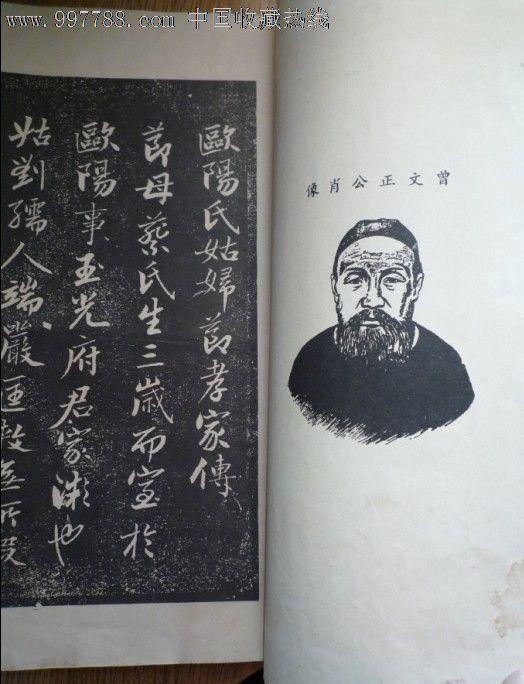 www.997788.com 中国收藏热线
曾文正公肖像
歐陽氏姑婦節孝家傳
節母蔡氏生三歲而室於
歐陽事玉光府君家漸也
姑劉孺人端嚴